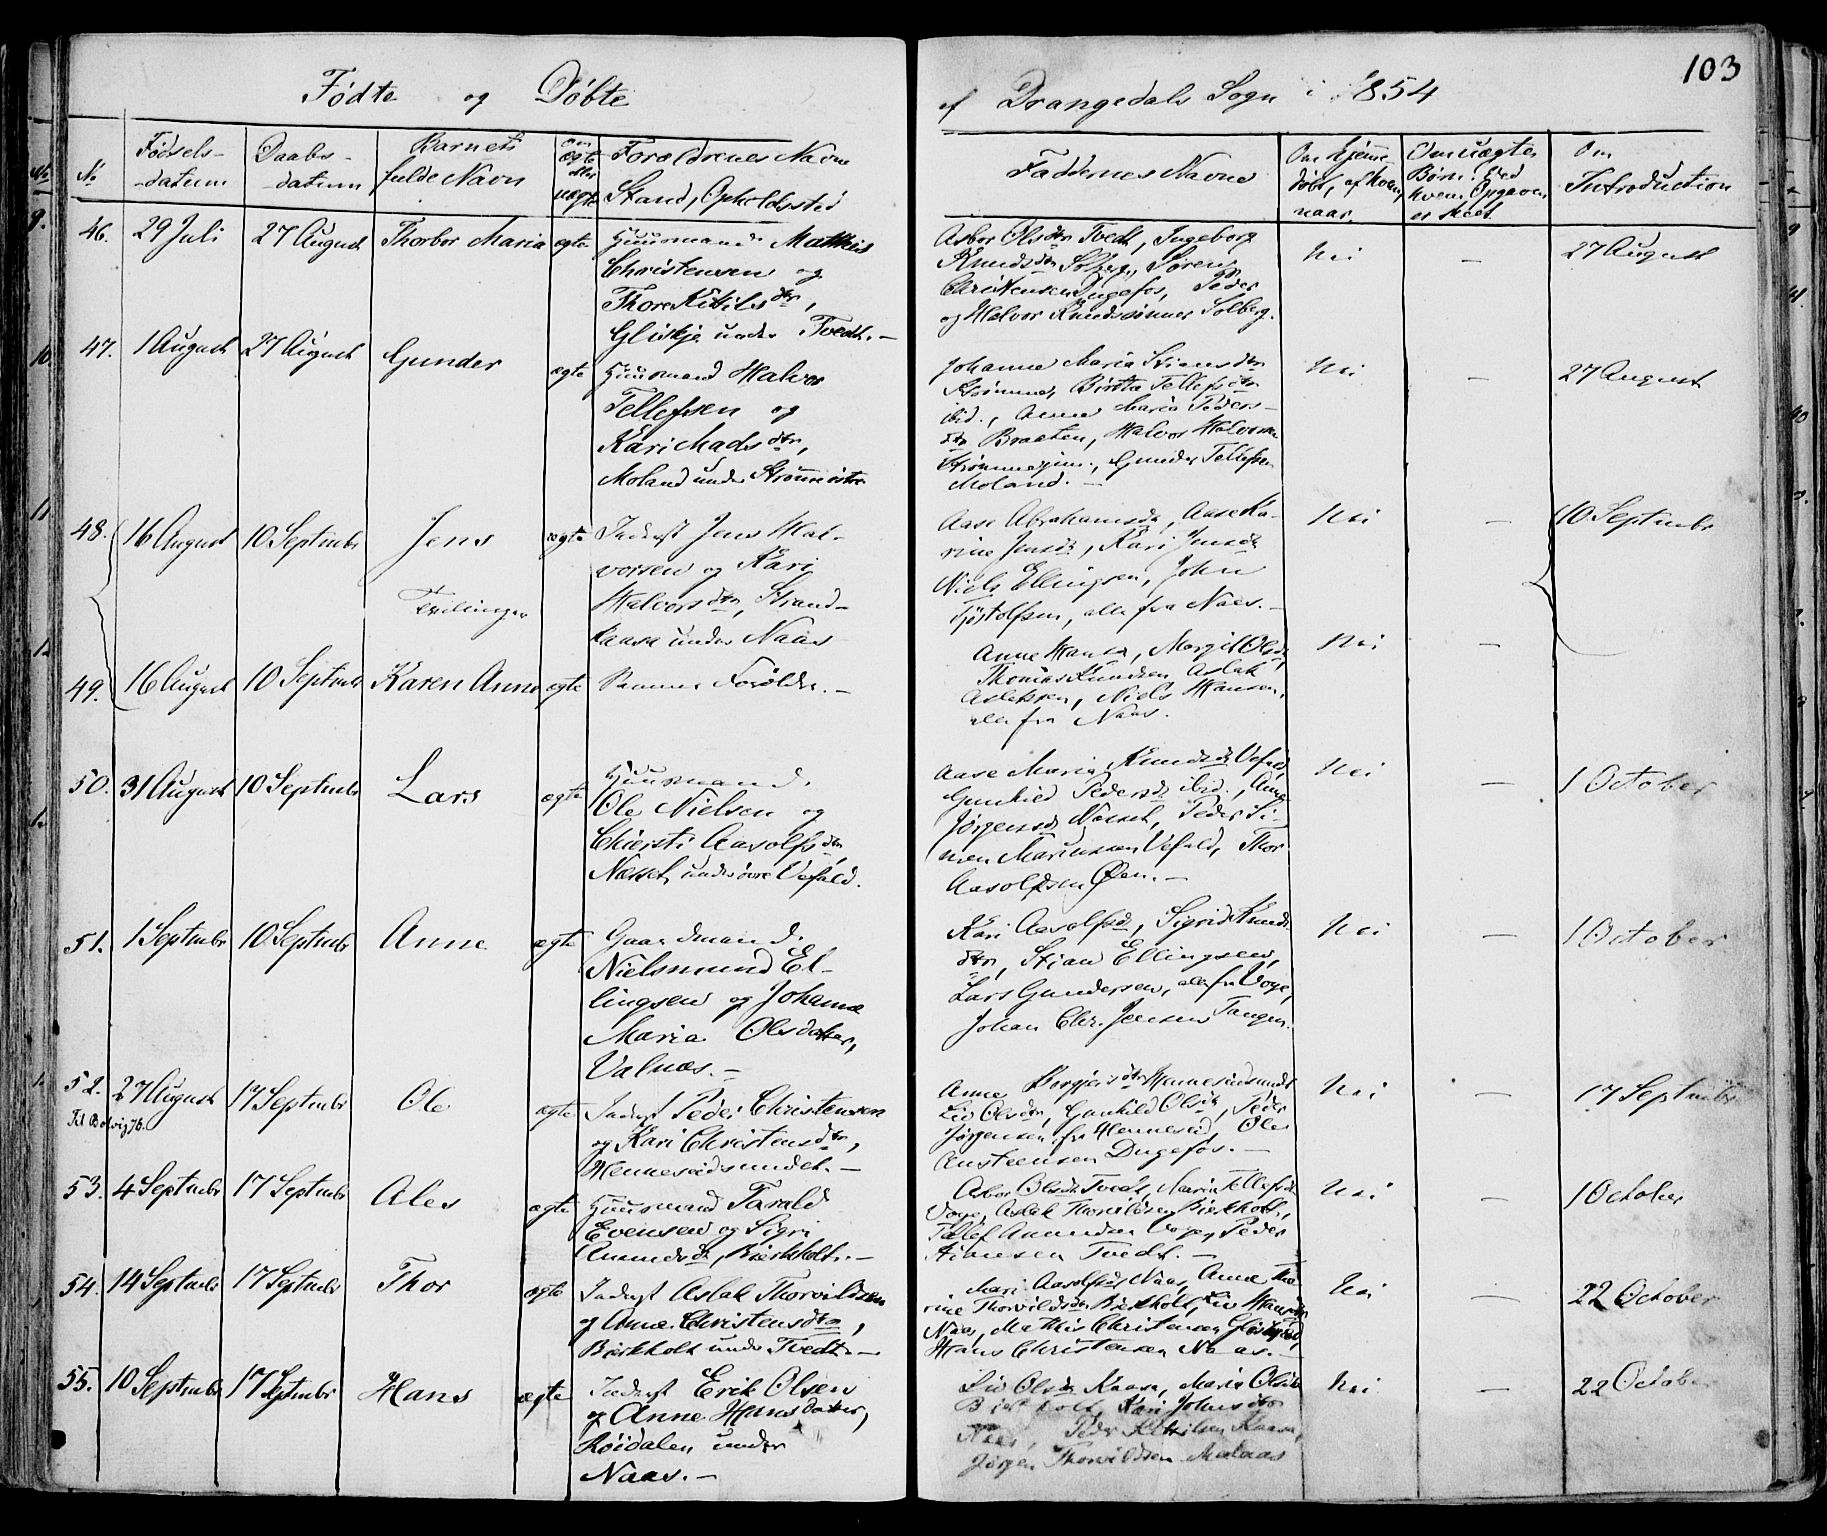 Fødte og Døbte
af Drangedals Sogn i 1854
103
No
Fødsels-
-datum
Daabs-
-datum
Barnets
fulde Navn
om
ægte
eller
uægte
Forældrenes Navn
Stand, Opholdssted
Faddernes Navne
Om hjemme-
døbt, af hvem,
naar
Om uægte
Børn: ved
hvem Opgaven
er skeet
Om
Introduction
46. 29 Juli 27 August Thorbor Maria ægte Huusmand Mathis
Christensen og
Thore Kittilsdtr,
Gliskje under Tvedt.-
Asbor Olsdtr Tvedt, Ingeborg
Knudsdtr Solberg, Søren
Christensen Dugefos, Peder
og Halvor Knudsønner Solberg.
Nei — 27 August
47. 1 August 27 August Gunder ægte Huusmand Halvor
Tellefsen og
Kari Madsdtr,
Moland under Strømme østre
Johanne Maria Stiansdtr
Strømme, Birtha Tellefsdtr
ibid., Anne Maria Peders-
dtr Braaten, Halvor Halvorsen
Gunder Tellefsen
Moland.-
Nei — 27 August
48. 16 August 10 Septmbr Jens ægte Inderst Jens Hal-
vorsen og Kari
Halvorsdtr, Strand-
kaasa under Naas
Tvillinger
Aase Abrahamsdtr, Aase Ka-
rine Jensdtr, Kari Jensdtr
Niels Ellingsen, John
Tjøstolfsen, alle fra Naas.-
Nei — 10 Septmbr
49. 16 August 10 Septmbr Karen Anne ægte Samme Forældre.-
Anne Hansdtr, Margit Olsdtr
Thomas Knudsen, Aslak
Aslaksen, Niels Hansen,
alle fra Naas.
Nei —
50. 31 August 10 Septmbr Lars ægte Huusmand
Ole Nielsen og
Chiersti Aasolfsdtr
Næset, under øvre Vefald.
Aase Maria Knudsdtr Vefald,
Gunhild Pedersdtr ibid., Anne
Jørgensdtr Næset, Peder Si-
men Mariussen Vefald, Thor
Aasolfsen Øen.-
Nei — 1 October
51. 1 Septmbr 10 Septmbr Anne ægte Gaardmand
Nielsmund El-
lingsen og Johanne
Maria Olsdatter,
Valnæs.-
Kari Aasolfsdtr, Sigrid Knuds-
dtr, Stian Ellingsen,
Lars Gundersen, alle fra Voge,
Johan Chr. Jensen Tangen.
Nei — 1 October
52. 27 August 17 Septmbr Ole ægte Inderst Peder Christensen
og Kari Christensdtr,
Henneseidsundet.-
Til Bolvig 76.
Anne Borgiersdtr Henneseidsundet
Liv Olsdtr, Gunhild Olsdtr, Peder
Jørgensen fra Henneseid, Ole
Austeensen Dugefos.-
Nei — 17 Septmbr
53. 4 Septmbr 17 Septmbr Ales ægte Huusmand Tarald
Evensen og Sigri
Amundsdtr, Bierkholt.-
Asbor Olsdtr Tvedt, Maria Tellefsdtr
Voge, Aslak Thorvildsen Bierkholt,
Tellef Amundsen Voge, Peder
Stiansen Tvedt.-
Nei — 1 October
54. 14 Septmbr 17 Septmbr Thor ægte Inderst Aslak Thorvildsen
og Anne Christensdtr,
Bierkholt under Tvedt.-
Mari Aasolfsdtr Naas, Anne Ka-
rine Thorvildsdtr Bierkholt, Liv Hansdtr
Naas, Mathis Christensen Gliskje,
Hans Christensen Naas.-
Nei — 22 October
55. 10 Septmbr 17 Septmbr Hans ægte Inderst Erik Olsen
og Anne Hansdatter,
Røidalen under
Naas.-
Liv Olsdtr Kaasa, Maria Olsdtr
Bierkholt, Kari Johnsdtr
Naas, Peder Kittilsen Kaasa,
Jørgen Thorvildsen
Nei — 22 October